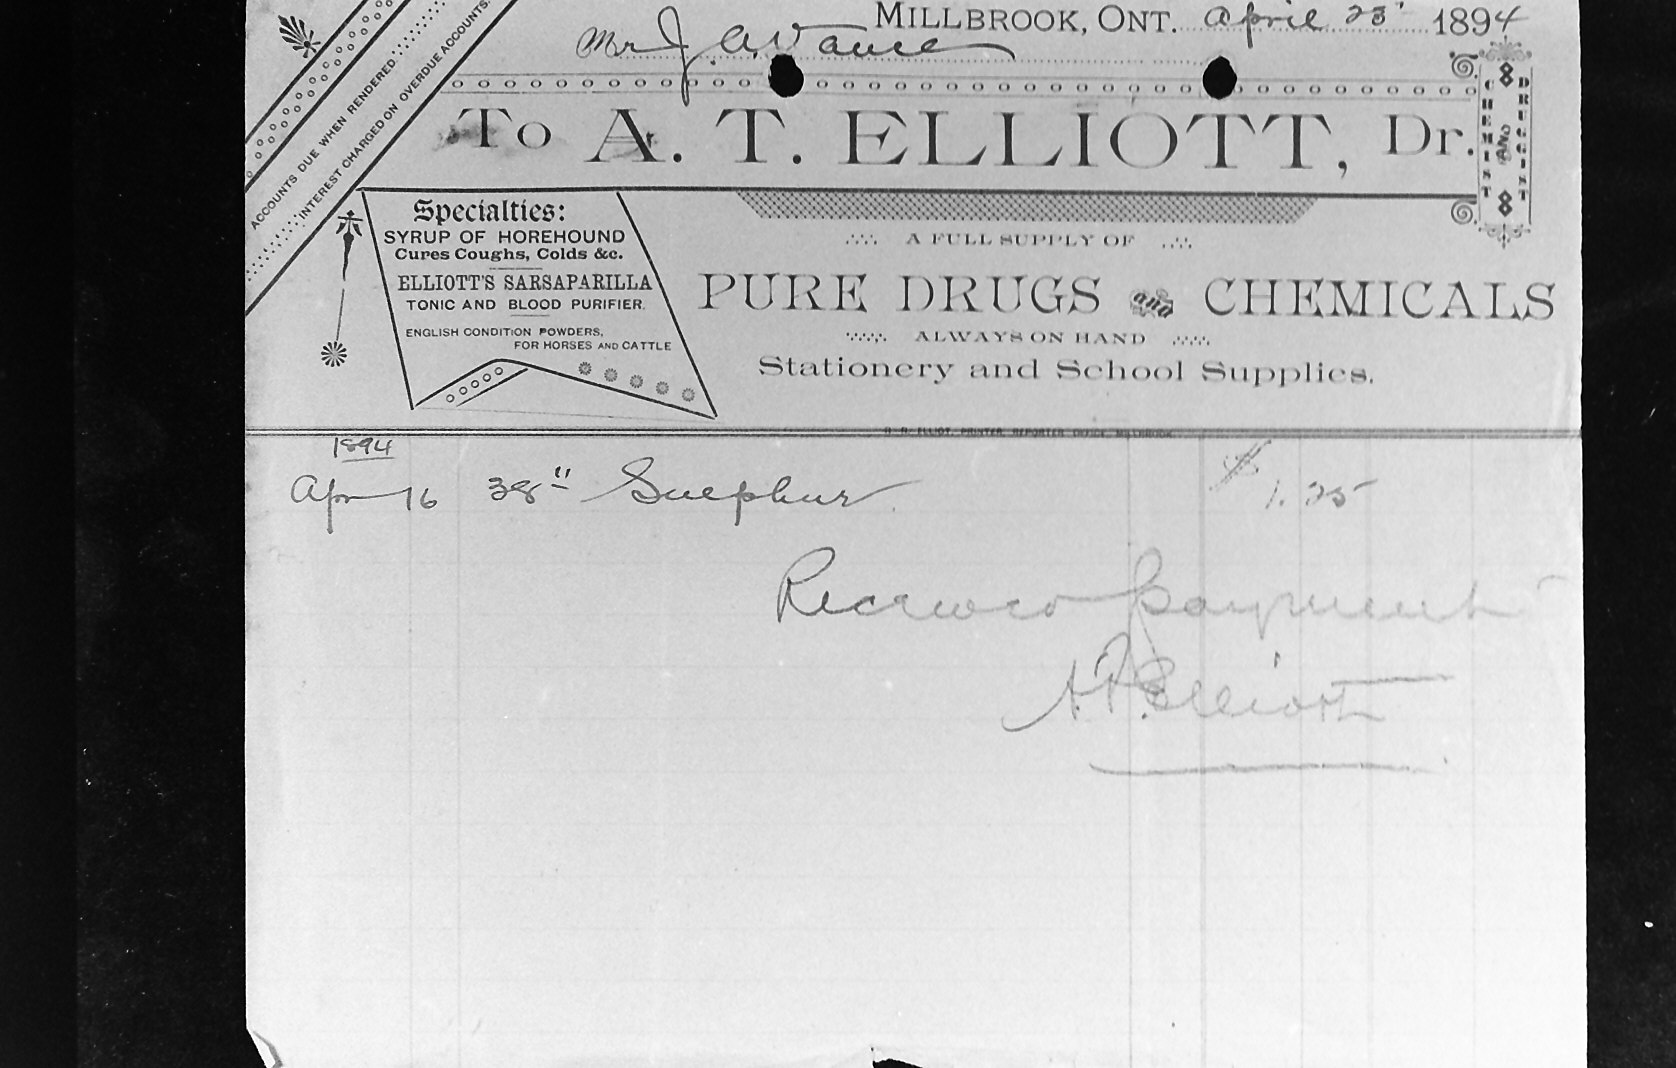 MILLBROOK, ONT. April 23 1894
Mr J. A. Vance
ACCOUNTS DUE WHEN RENDERED
INTEREST CHARGED ON OVERDUE ACCOUNTS.
To A. T. ELLIOTT, Dr.
CHEMIST AND DRUGGIST
Specialties:
SYRUP OF HOREHOUND
Cures Coughs, Colds &c.
ELLIOTT'S SARSAPARILLA
TONIC AND BLOOD PURIFIER.
ENGLISH CONDITION POWDERS,
FOR HORSES AND CATTLE
A FULL SUPPLY OF
PURE DRUGS and CHEMICALS
ALWAYS ON HAND
Stationery and School Supplies.
ELLIOT, PRINTER, REPORTER OFFICE, MILLBROOK
1894
Apr 16 38" Sulphur $1.25
Received payment
A. T. Elliott